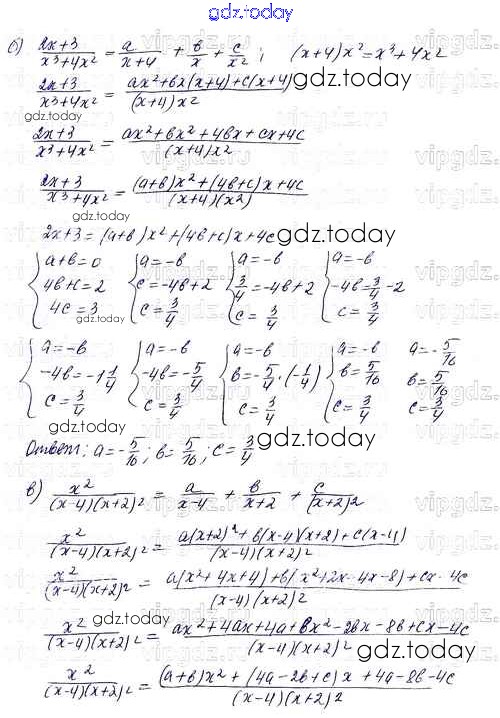 gdz.today
б) (2x+3)/(x³+4x²) = a/(x+4) + в/x + c/x² ; (x+4)x² = x³+4x²
(2x+3)/(x³+4x²) = (ax²+вx(x+4)+c(x+4))/((x+4)x²)
gdz.today
gdz.today
(2x+3)/(x³+4x²) = (ax²+вx²+4вx+cx+4c)/((x+4)x²)
(2x+3)/(x³+4x²) = ((a+в)x²+(4в+c)x+4c)/((x+4)(x²))
gdz.today
2x+3=(a+в)x²+(4в+c)x+4c
gdz.today
{a+в=0 {a=-в {a=-в {a=-в
4в+c=2 c=-4в+2 3/4=-4в+2 -4в=3/4-2
4c=3 c=3/4 c=3/4 c=3/4
gdz.today
{a=-в {a=-в {a=-в {a=-в a=-5/16
-4в=-1 1/4 -4в=-5/4 в=-5/4·(-1/4) в=5/16 в=5/16
c=3/4 c=3/4 c=3/4 c=3/4 c=3/4
gdz.today
Ответ: a=-5/16; в=5/16; c=3/4
gdz.today
в) x²/((x-4)(x+2)²) = a/(x-4) + в/(x+2) + c/(x+2)²
x²/((x-4)(x+2)²) = (a(x+2)²+в(x-4)(x+2)+c(x-4))/((x-4)(x+2)²)
x²/((x-4)(x+2)²) = (a(x²+4x+4)+в(x²+2x-4x-8)+cx-4c)/((x-4)(x+2)²)
gdz.today
x²/((x-4)(x+2)²) = (ax²+4ax+4a+вx²-2вx-8в+cx-4c)/((x-4)(x+2)²)
gdz.today
x²/((x-4)(x+2)²) = ((a+в)x²+(4a-2в+c)x+4a-8в-4c)/((x-4)(x+2)²)
gdz.today